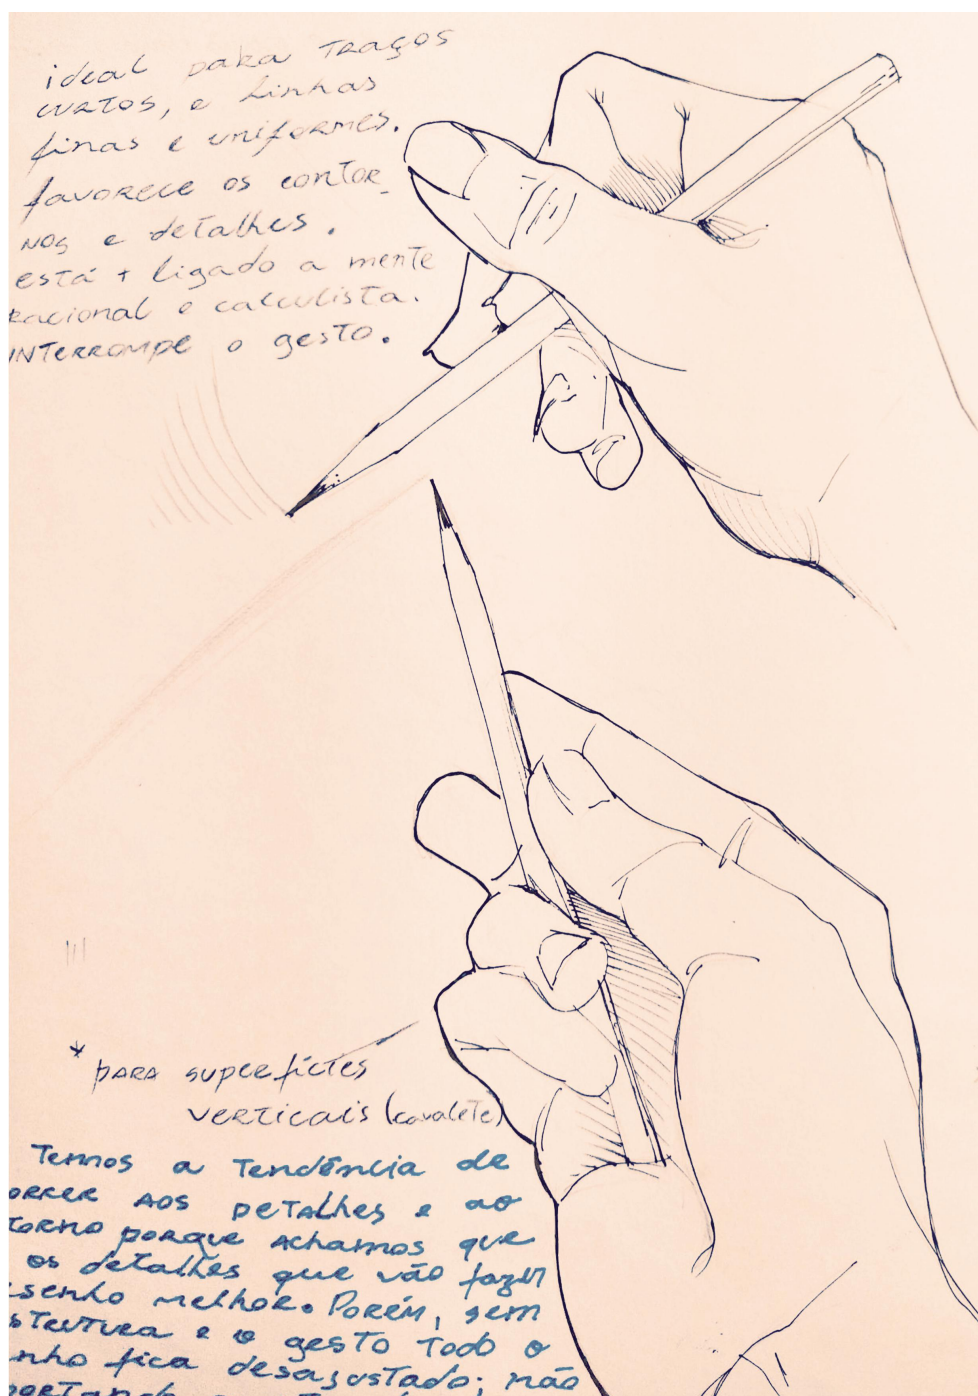 ideal para traços
curtos, e linhas
finas e uniformes.
favorece os contor_
nos e detalhes.
está + ligado a mente
racional e calculista.
interrompe o gesto.
* para superfícies
verticais (cavalete)
Temos a tendência de
orrer aos detalhes e ao
torno porque achamos que
os detalhes que vão fazer
senho melhor. Porém, sem
strutura e o gesto todo o
nho fica desajustado; não